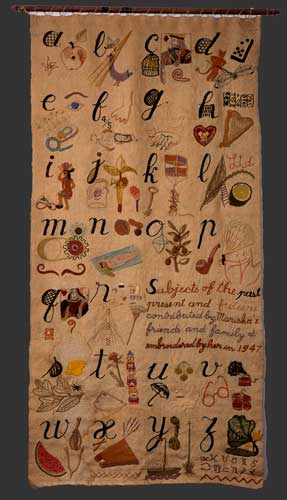 a b c d
e f g h
4/5
i j k l
m n o p
q r
Subjects of the past
present and future
contributed by Mariska's
friends and family &
embroidered by her in 1947
t u v
w x y z